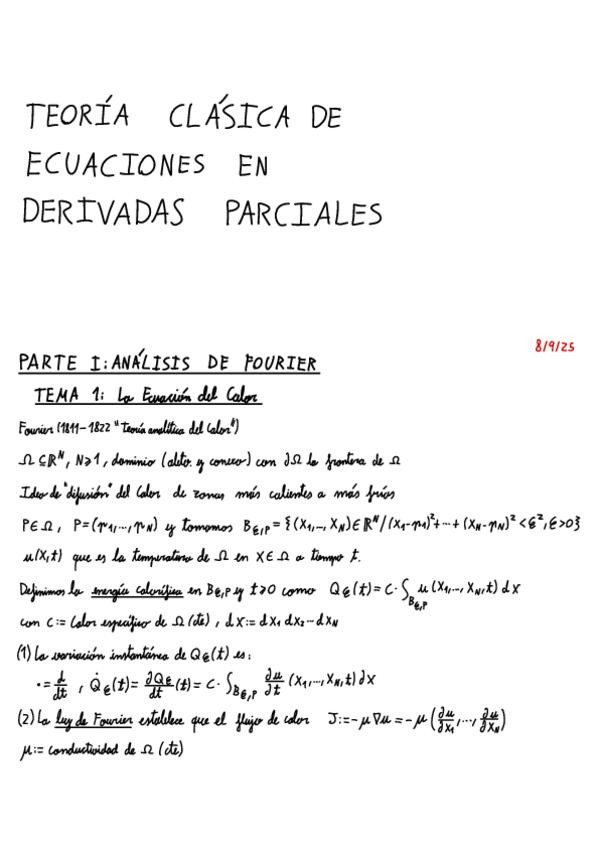 TEORÍA CLÁSICA DE
ECUACIONES EN
DERIVADAS PARCIALES
8/9/25
PARTE I: ANÁLISIS DE FOURIER
TEMA 1: La Ecuación del Calor
Fourier (1811-1822 "Teoría analítica del Calor")
Ω ⊆ ℝᴺ, N≥1, dominio (abto. y conexo) con ∂Ω la frontera de Ω
Idea de "difusión" del Calor de zonas más calientes a más frías
P∈Ω, P=(p₁,...,p_N) y tomamos B_{ε,P} = {(x₁,...,x_N)∈ℝᴺ/(x₁-p₁)²+...+(x_N-p_N)²<ε², ε>0}
u(x,t) que es la temperatura de Ω en x∈Ω a tiempo t.
Definimos la energía calorífica en B_{ε,P} y t≥0 como Q_ε(t)=C·∫_{B_{ε,P}} u(x₁,...,x_N,t)dx
con C:= Calor específico de Ω (cte), dx:= dx₁ dx₂...dx_N
(1) La variación instantánea de Q_ε(t) es:
·=d/dt, Q̇_ε(t)=∂Q_ε/∂t(t)=C·∫_{B_{ε,P}} ∂u/∂t (x₁,...,x_N,t)dx
(2) La ley de Fourier establece que el flujo de calor J:=-μ∇u=-μ(∂u/∂x₁,...,∂u/∂x_N)
μ:= conductividad de Ω (cte)